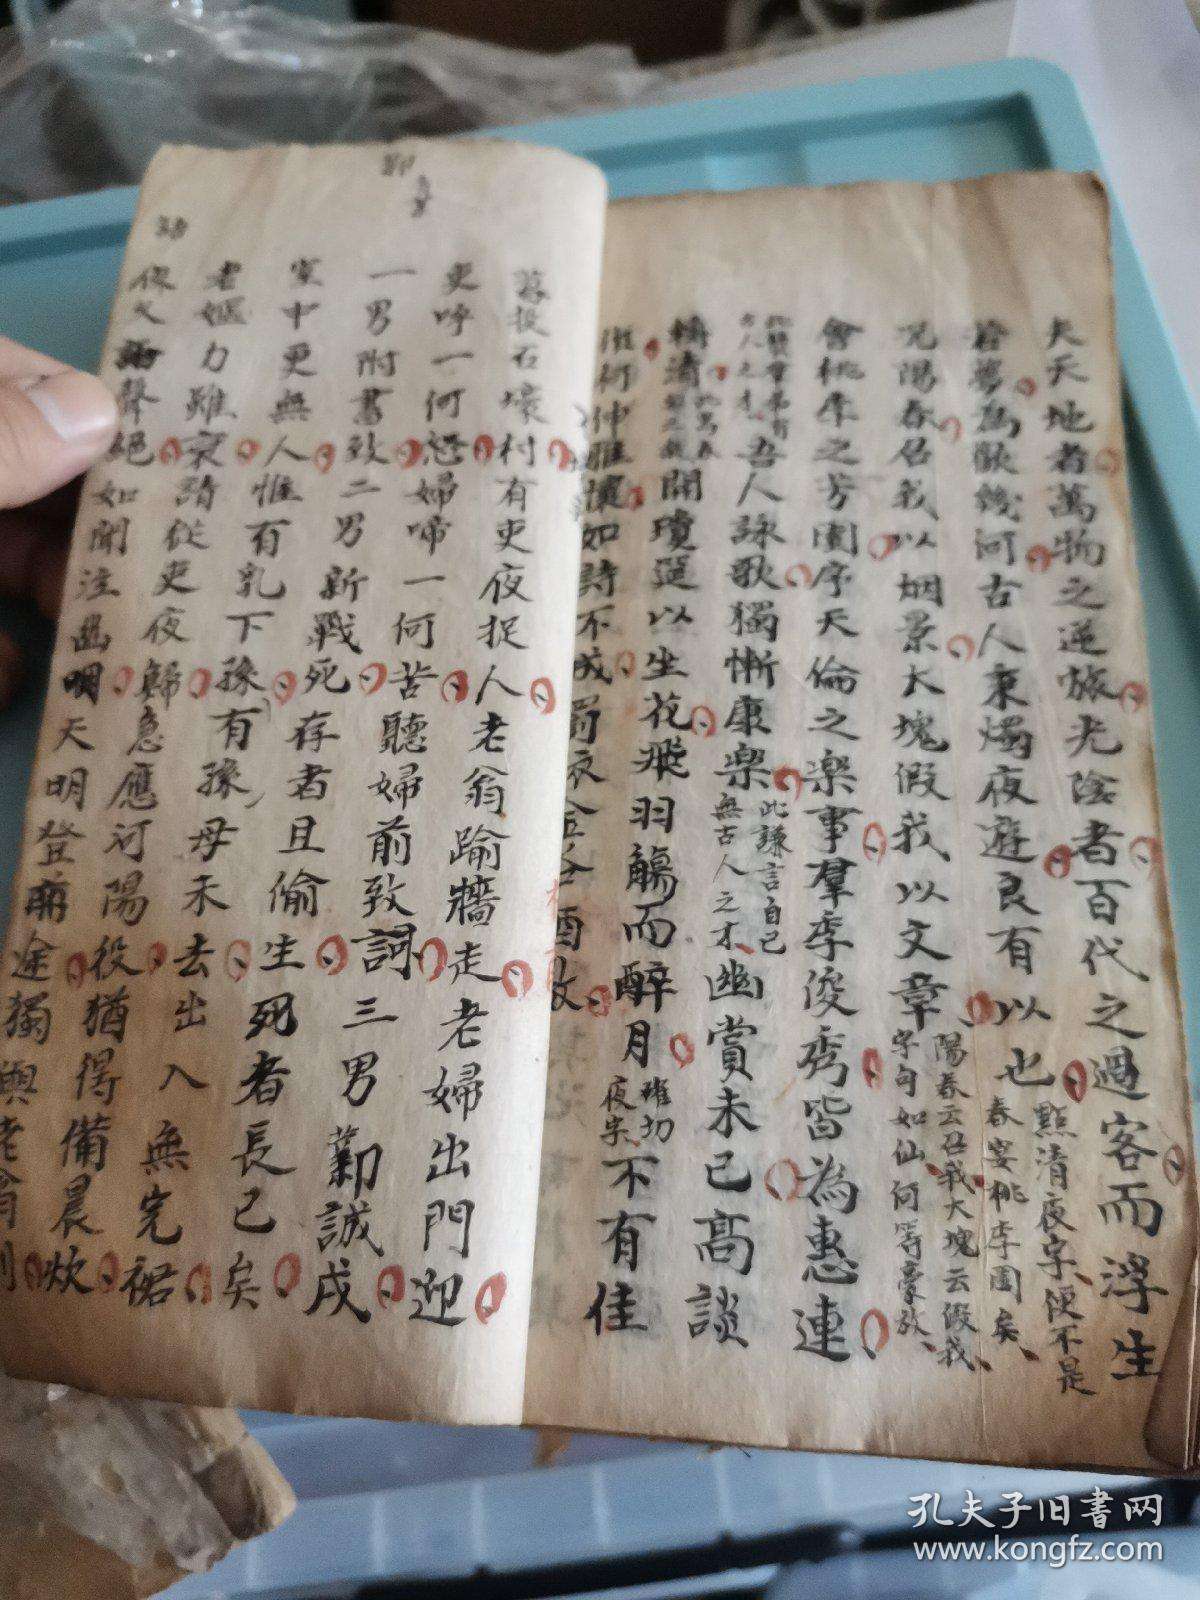 夫天地者萬物之逆旅光陰者百代之過客而浮生
若夢為歡幾何古人秉燭夜遊良有以也
點清夜字便不是
春宴桃李園矣
况陽春召我以烟景大塊假我以文章
陽春云召我大塊云假我
字句如仙何等豪放
會桃李之芳園序天倫之樂事羣季俊秀皆為惠連
吾人詠歌獨慚康樂
此謙言自己
無古人之才
幽賞未已高談
轉清
開瓊筵以坐花飛羽觴而醉月
夜字
不有佳
何伸雅懷如詩不成罰依金谷酒數
暮投石壕村有吏夜捉人老翁踰牆走老婦出門迎
吏呼一何怒婦啼一何苦聽婦前致詞三男鄴城戍
一男附書致二男新戰死存者且偷生死者長已矣
室中更無人惟有乳下孫有孫母未去出入無完裙
老嫗力雖衰請從吏夜歸急應河陽役猶得備晨炊
夜久語聲絕如聞泣幽咽天明登前途獨與老翁別
孔夫子旧书网
www.kongfz.com